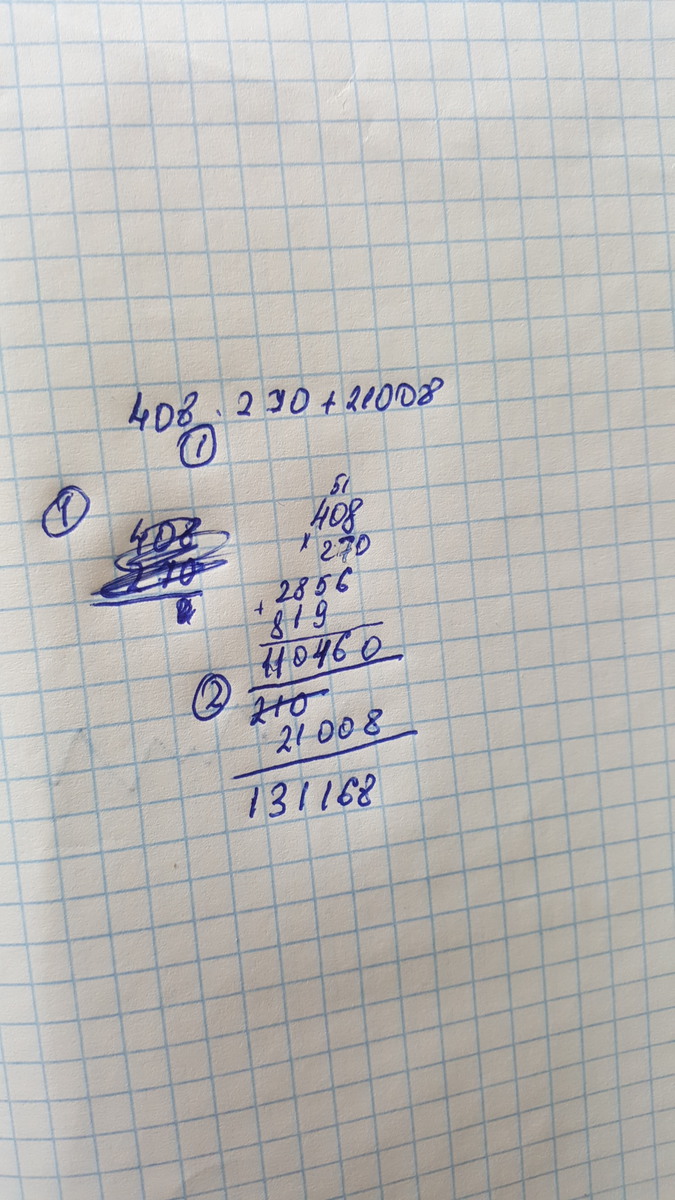 408 · 270 + 21008
①
①
408
270
51
408
× 270
2856
+ 819
110460
②
210
21008
131168